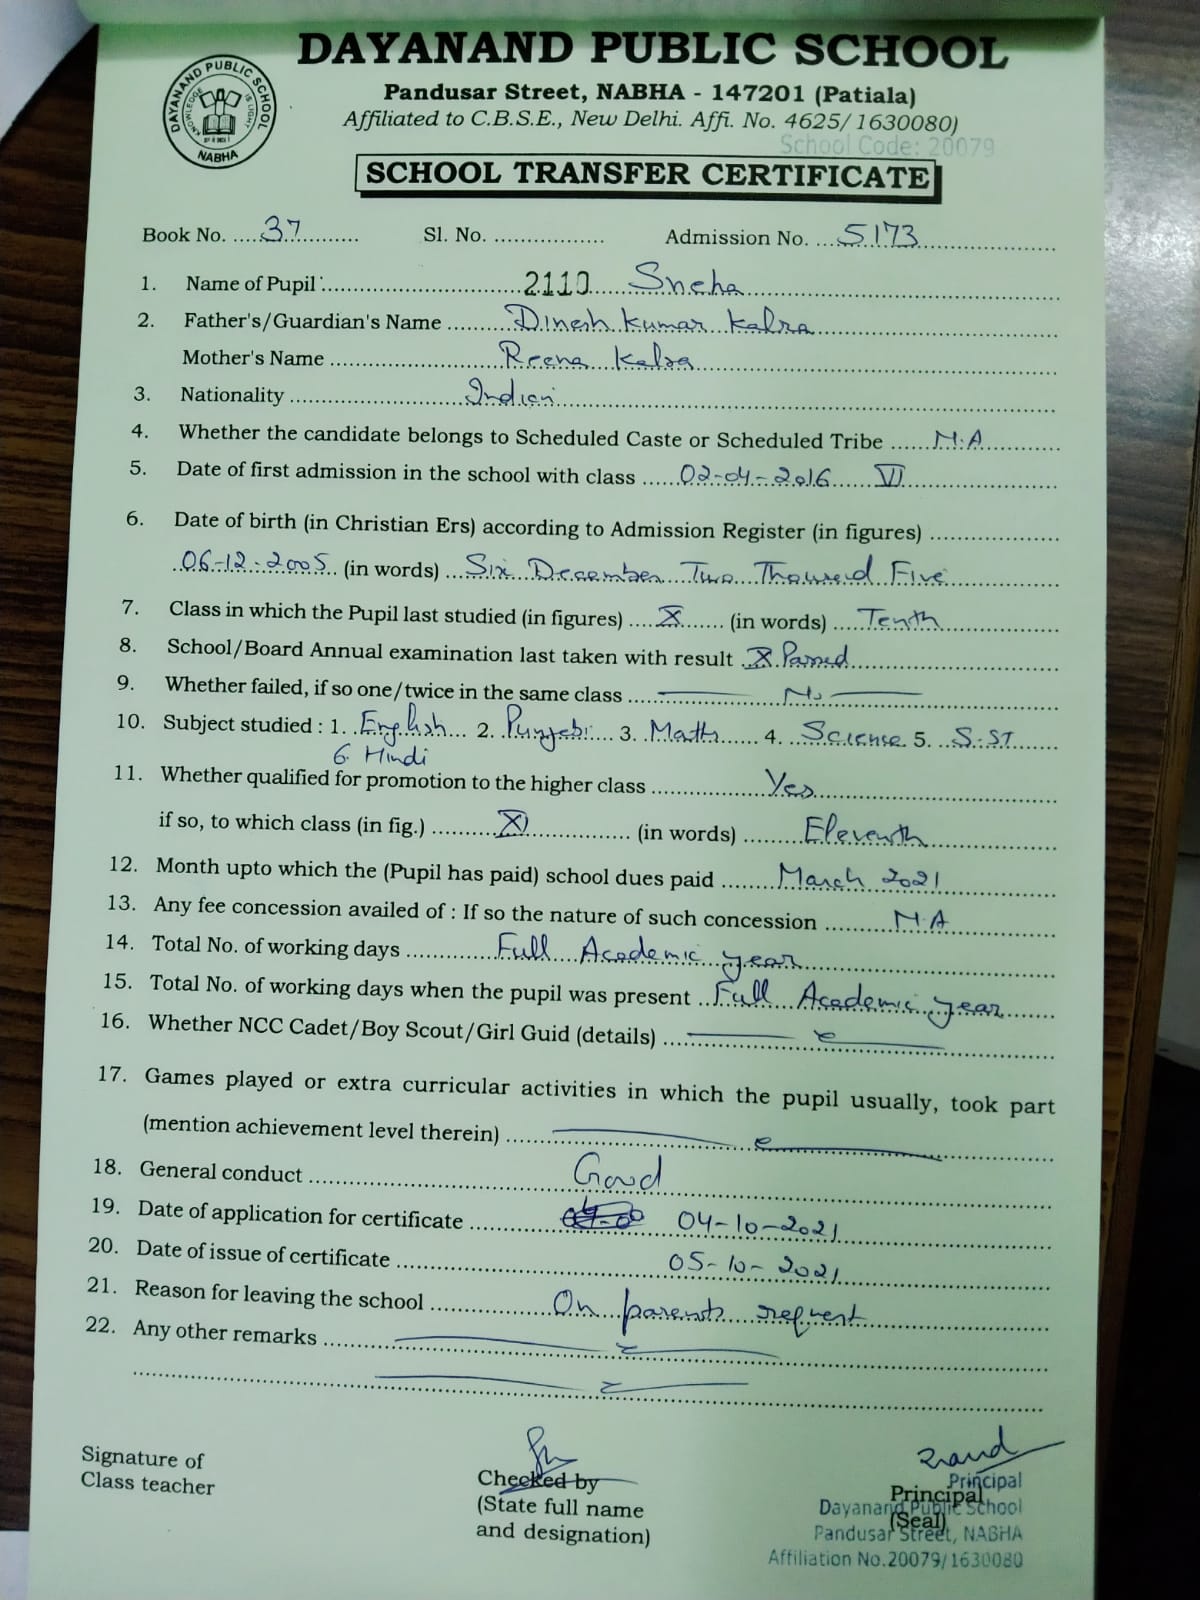 DAYANAND PUBLIC SCHOOL
DAYANAND PUBLIC SCHOOL
KNOWLEDGE IS LIGHT
NABHA
Pandusar Street, NABHA - 147201 (Patiala)
Affiliated to C.B.S.E., New Delhi. Affi. No. 4625/1630080)
School Code: 20079
SCHOOL TRANSFER CERTIFICATE
Book No. ....37.......... Sl. No. ................ Admission No. ...5173..................
1. Name of Pupil :..............................2110.....Sneha..............................
2. Father's/Guardian's Name .........Dinesh Kumar Kalra..............................
Mother's Name ........................Reena Kalra..............................
3. Nationality ..........................Indian..............................
4. Whether the candidate belongs to Scheduled Caste or Scheduled Tribe ......N.A..........
5. Date of first admission in the school with class .....02-04-2016......VI..................
6. Date of birth (in Christian Ers) according to Admission Register (in figures) ..................
.06-12-2005.. (in words) ...Six December Two Thousand Five
7. Class in which the Pupil last studied (in figures) ....X....... (in words) ....Tenth..................
8. School/Board Annual examination last taken with result .X Passed..............................
9. Whether failed, if so one/twice in the same class ..........No..........
10. Subject studied : 1. .English... 2. .Punjabi... 3. .Maths...... 4. ..Science. 5. ..S.ST......
6. Hindi
11. Whether qualified for promotion to the higher class ..................Yes..............................
if so, to which class (in fig.) ..........XI............... (in words) .........Eleventh..................
12. Month upto which the (Pupil has paid) school dues paid ........March 2021..................
13. Any fee concession availed of : If so the nature of such concession ..........N.A..................
14. Total No. of working days .............Full Academic year..............................
15. Total No. of working days when the pupil was present ..Full Academic year.......
16. Whether NCC Cadet/Boy Scout/Girl Guid (details) ..............................
17. Games played or extra curricular activities in which the pupil usually, took part
(mention achievement level therein) ..............................
18. General conduct ..............................Good..............................
19. Date of application for certificate .................. 04-10-2021..............................
20. Date of issue of certificate ..............................05-10-2021..............................
21. Reason for leaving the school ..................On parents request..............................
22. Any other remarks ..............................
Signature of
Class teacher
Checked by
(State full name
and designation)
Principal
(Seal)
Principal
Dayanand Public School
Pandusar Street, NABHA
Affiliation No.20079/1630080